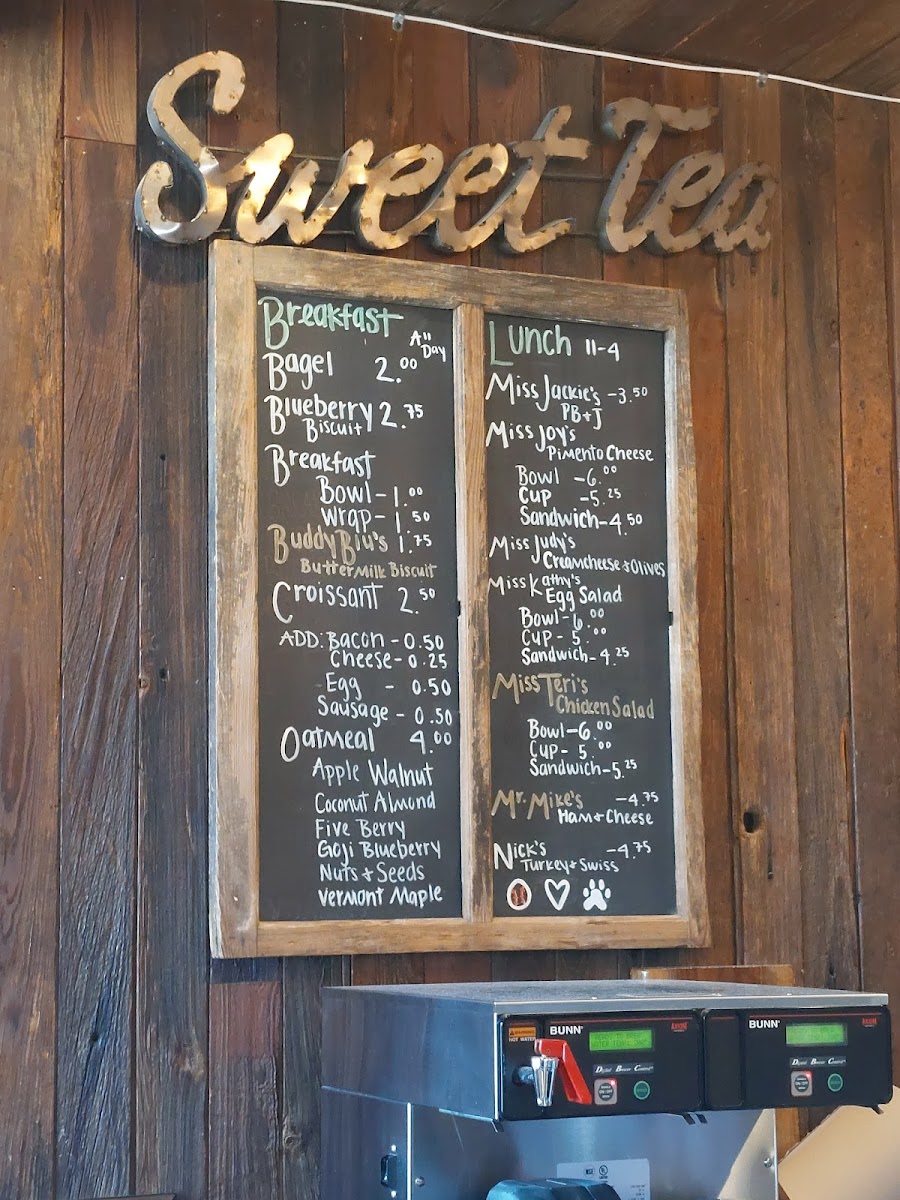 Sweet Tea
Breakfast All Day
Bagel 2.00
Blueberry 2.75
Biscuit
Breakfast
Bowl - 1.00
Wrap - 1.50
Buddy Blu's 1.75
ButterMilk Biscuit
Croissant 2.50
ADD: Bacon - 0.50
Cheese - 0.25
Egg - 0.50
Sausage - 0.50
Oatmeal 4.00
Apple Walnut
Coconut Almond
Five Berry
Goji Blueberry
Nuts + Seeds
Vermont Maple
Lunch 11-4
Miss Jackie's - 3.50
PB+J
Miss Joy's
Pimento Cheese
Bowl - 6.00
Cup - 5.25
Sandwich - 4.50
Miss Judy's
Creamcheese + Olives
Miss Kathy's
Egg Salad
Bowl - 6.00
Cup - 5.00
Sandwich - 4.25
Miss Teri's
Chicken Salad
Bowl - 6.00
Cup - 5.00
Sandwich - 5.25
Mr. Mike's - 4.75
Ham + Cheese
Nick's - 4.75
Turkey + Swiss
BUNN
HOT WATER
Digital Brewer Control
BUNN
Digital Brewer Control